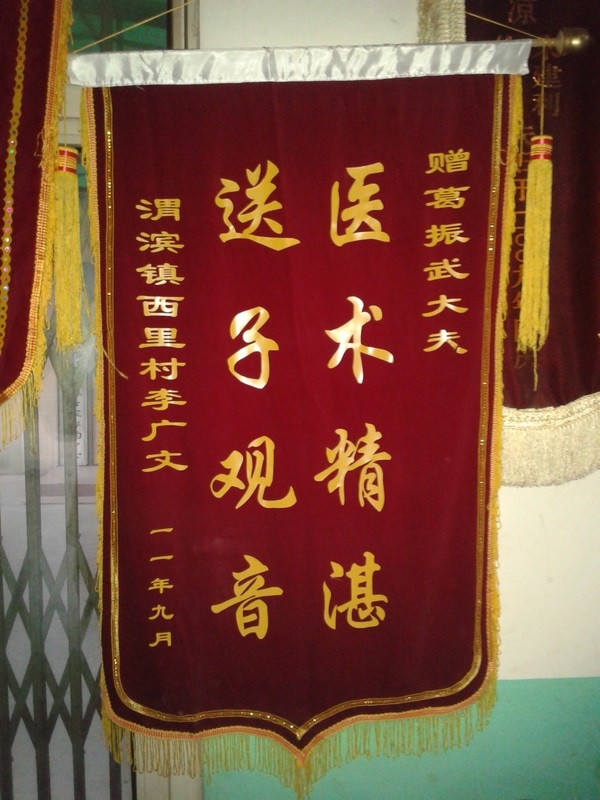 赠葛振武大夫
医术精湛
送子观音
渭滨镇西里村李广文
一一年九月